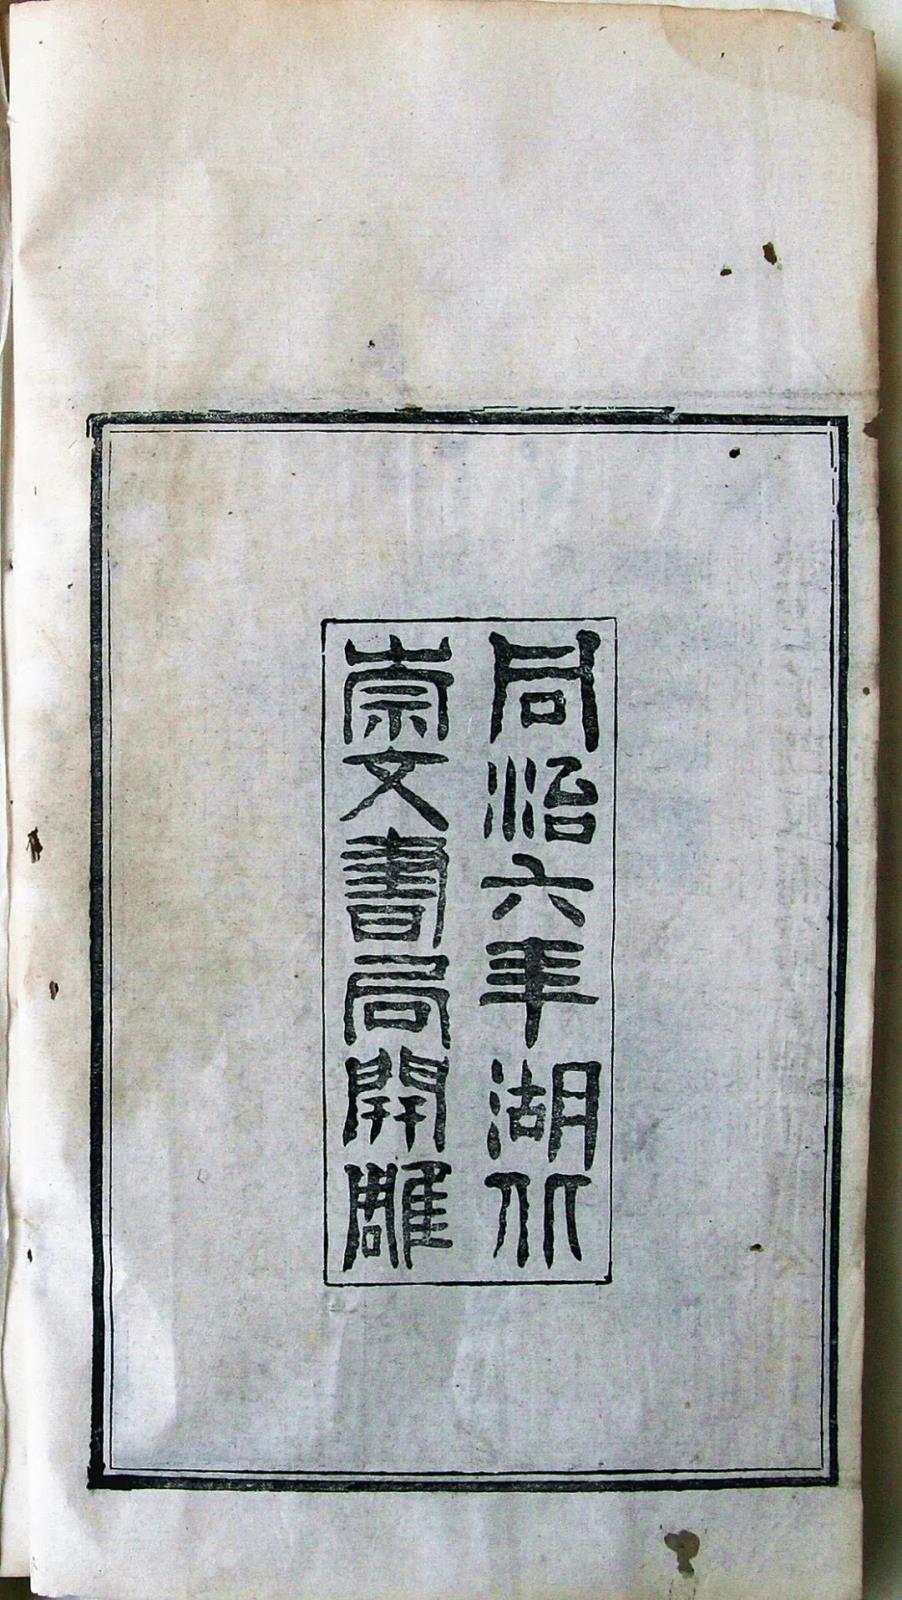 同治六年湖北
崇文書局開雕